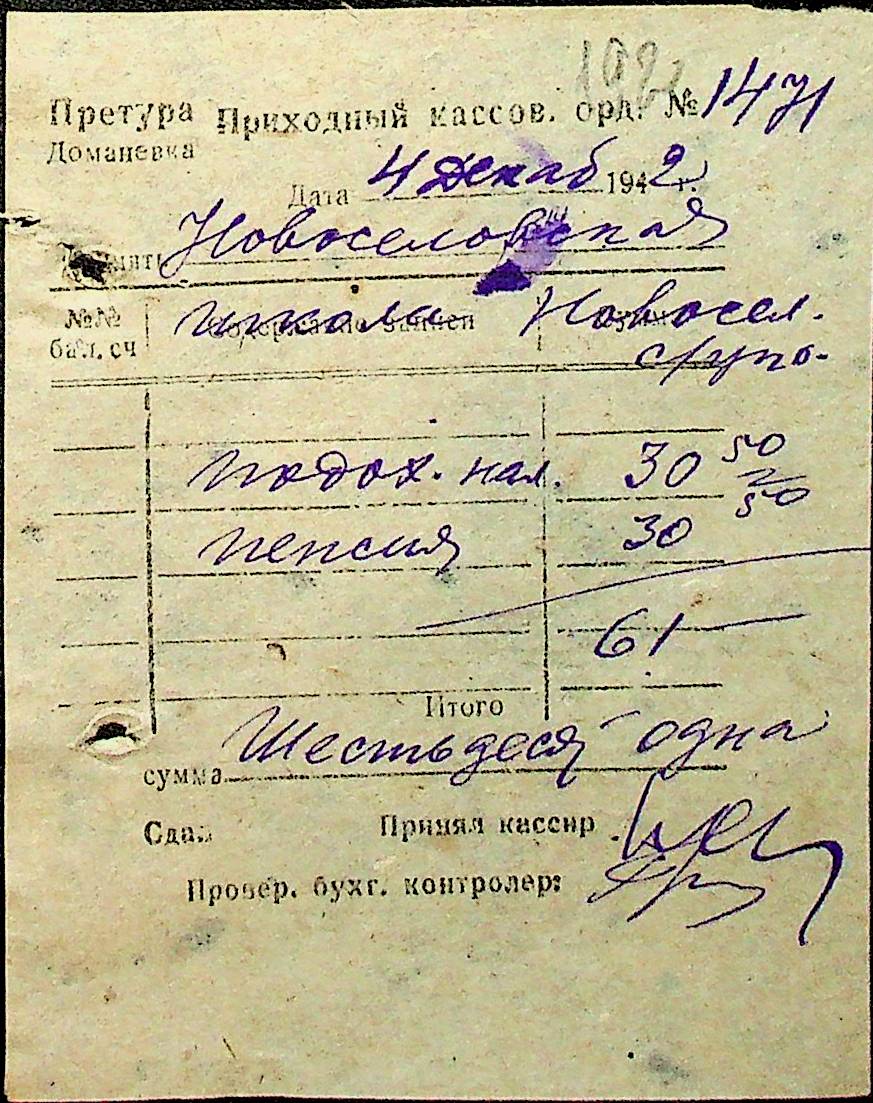 Претура Приходный кассов. орд. № 1471
Доманевка
Дата 4 Декаб 1942 г.
Новоселовская
№№ школа Новосел.
бал. сч Содержание записи
с/упр.
подох. нал. 30 50
пенсия 30 50
61
Итого
сумма Шестьдесят одна
Сдал Принял кассир
Провер. бухг. контролер: